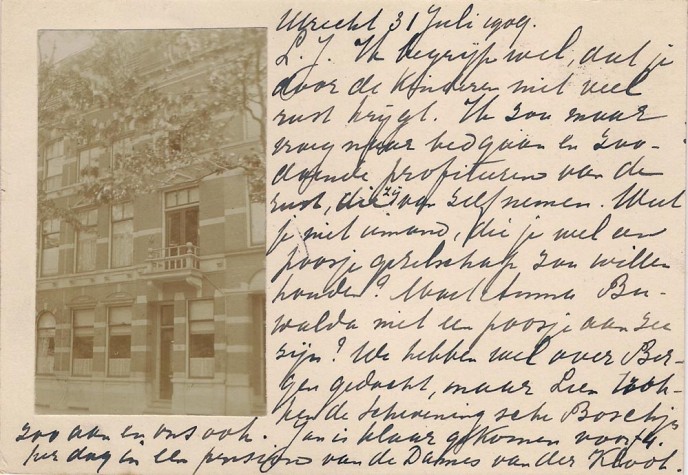 Utrecht 31 Juli 1909.
L. J. Ik begrijp wel, dat je
door de kinderen niet veel
rust krijgt. Ik zou maar
vroeg naar bed gaan en zoo-
doende profiteren van de
rust, die zij van zelf nemen. Weet
je niet iemand, die je wel een
poosje gezelschap zou willen
houden? Moet Anna Bu-
walda niet een poosje aan zee
zijn? We hebben wel over Ber-
gen gedacht, maar Leen trok-
ken de Scheveningsche Boschjes
zoo aan en ons ook. Jan is klaar gekomen voor
per dag in een pension van de Dames van der